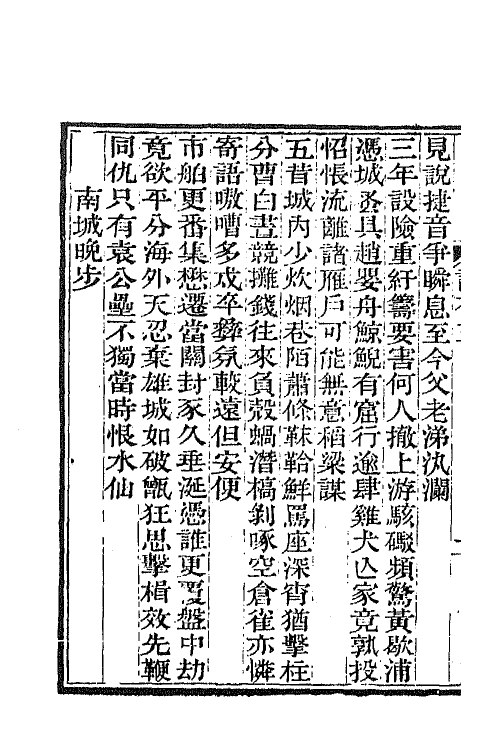 見說捷音爭瞬息至今父老涕汍瀾
三年設險重紆籌要害何人撤上游駭礮頻驚黃歇浦
憑城蚤具趙嬰舟鯨鯢有窟行逾肆雞犬亾家竟孰投
怊悵流離諸雁戶可能無意稻粱謀
五昔城內少炊烟巷陌蕭條靺鞈鮮罵座深宵猶擊柱
分曹白晝競攤錢往來負殼蝸潛槁剝啄空倉雀亦憐
寄語嗷嘈多戍卒彝氛較遠但安便
市舶更番集懋遷當關封豕久垂涎憑誰更覆盤中劫
竟欲平分海外天忍棄雄城如破甑狂思擊楫效先鞭
同仇只有袁公壘不獨當時恨水仙
南城晚步